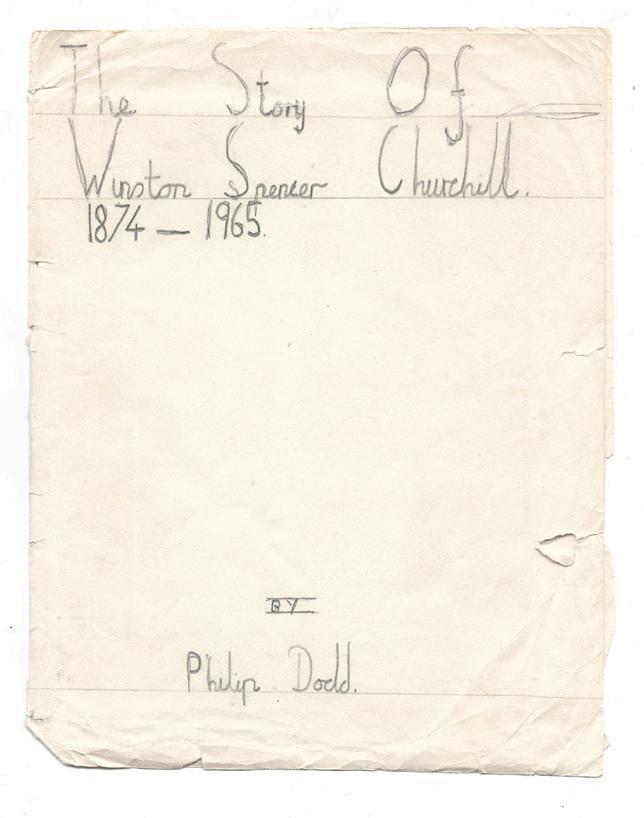 The Story Of
Winston Spencer Churchill.
1874 — 1965.
BY
Philip Dodd.